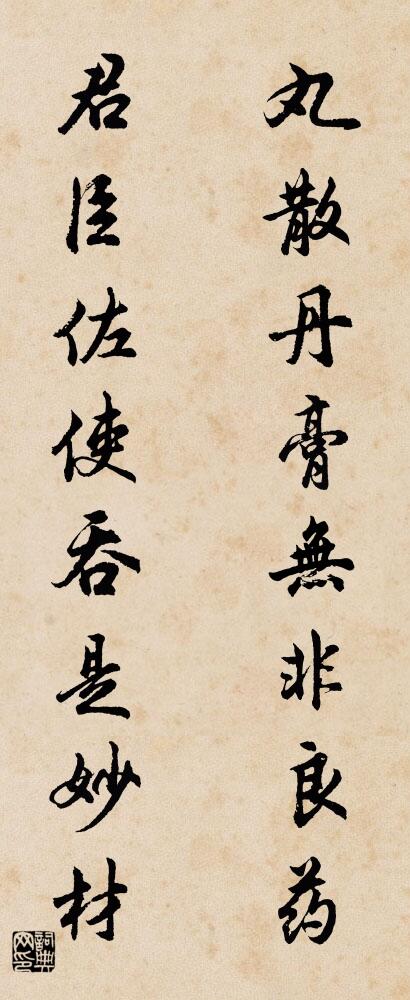 丸散丹膏無非良药
君臣佐使吞是妙材
詞典
网印